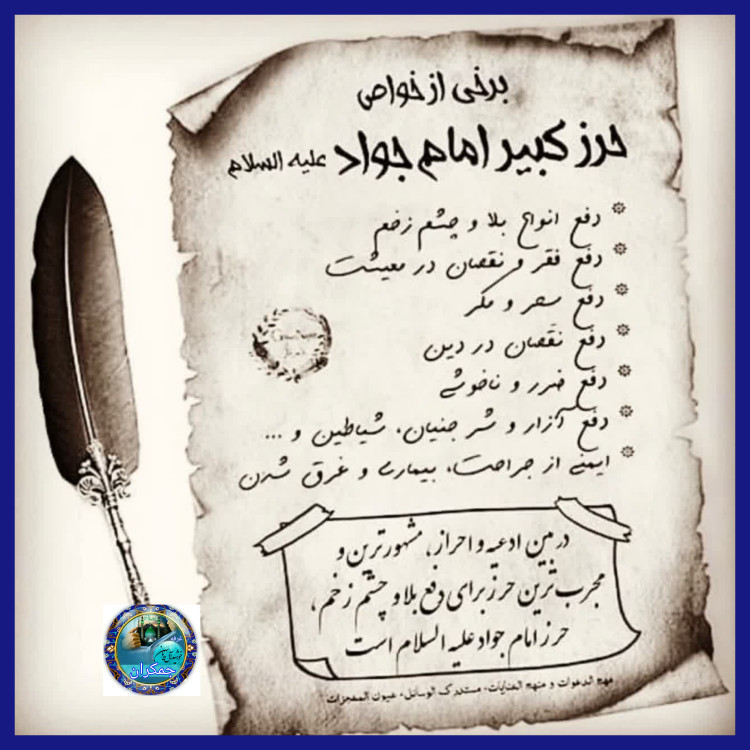 برخی از خواص
حرز کبیر امام جواد علیه السلام
دفع انواع بلا و چشم زخم
دفع فقر و نقصان در معیشت
دفع سحر و مکر
دفع نقصان در دین
دفع ضرر و ناخوشی
دفع آزار و شر جنیان، شیاطین و ...
ایمنی از جراحت، بیماری و غرق شدن
در بین ادعیه و احراز، مشهورترین و
مجرب ترین حرز برای دفع بلا و چشم زخم،
حرز امام جواد علیه السلام است
مهج الدعوات و منهج العنایات- مستدرک الوسائل- عیون المعجزات
جمکران